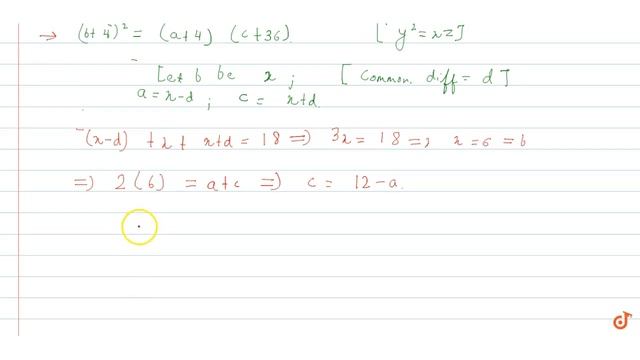 → (b+4)² = (a+4) (c+36). [∵ y² = xz]
Let b be x ; [Common diff = d]
a = x-d ; c = x+d.
(x-d) + x + x+d = 18 ⇒ 3x = 18 ⇒ x = 6 = b
⇒ 2(6) = a+c ⇒ c = 12-a.